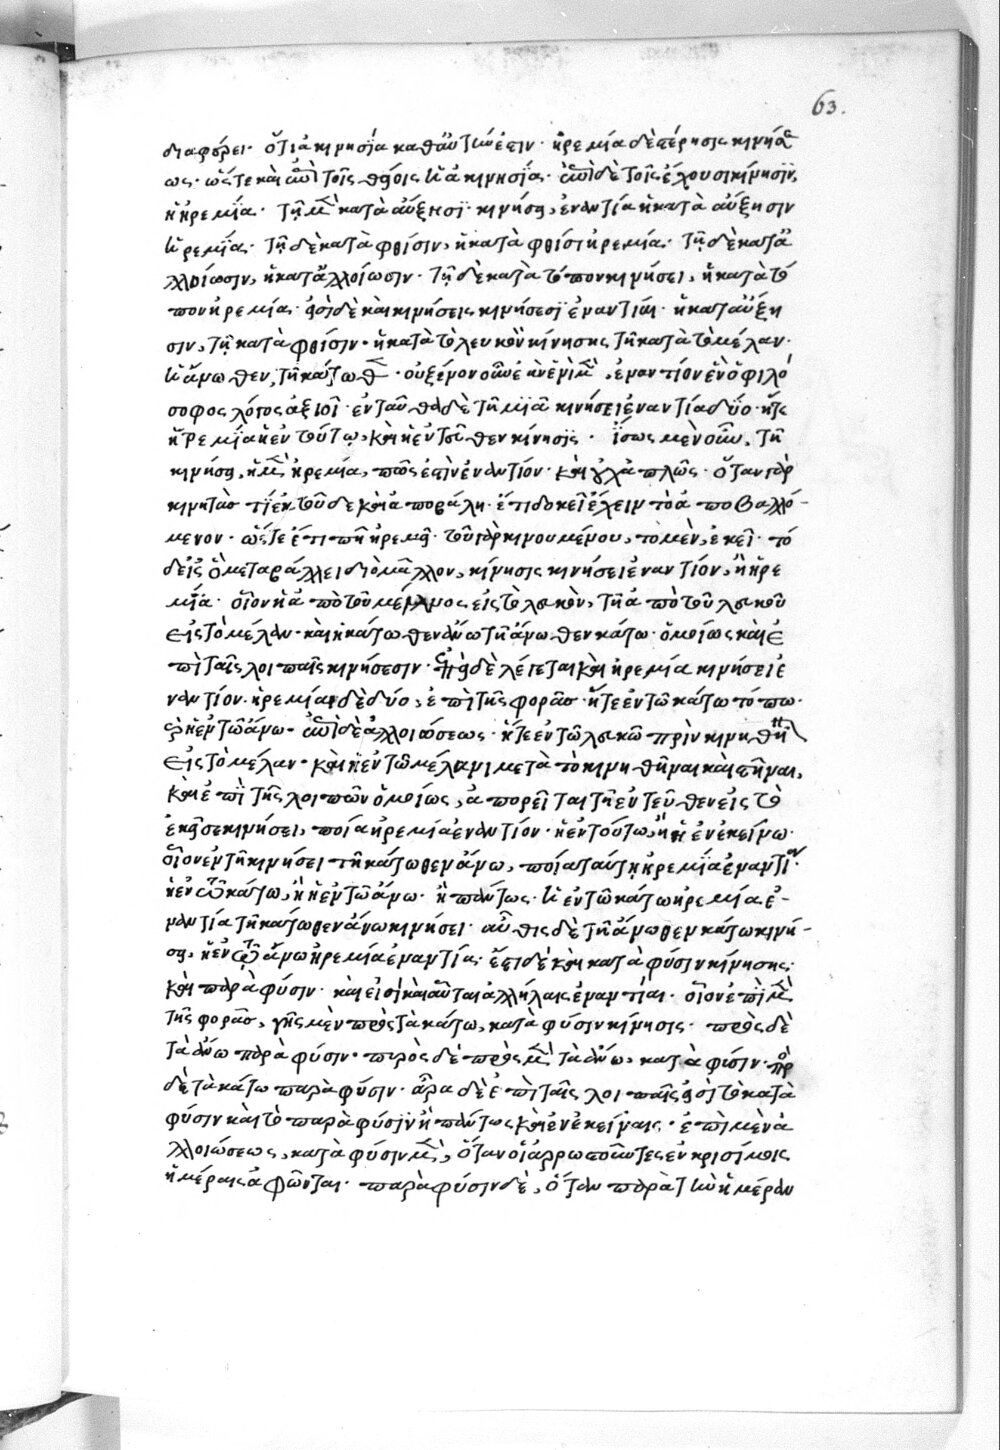 63.
διαφέρει· ὅτι ἀκινησία καθ' αὑτὴν ἐστιν· ἠρεμία δὲ στέρησις κινήσε
ως· ὥστε καὶ ἐπὶ τοῖς θείοις ἡ ἀκινησία· ἐπὶ δὲ τοῖς ἔχουσι κίνησιν,
ἡ ἠρεμία· τῇ μὲν κατὰ αὔξησιν κινήσει, ἐναντία ἡ κατὰ αὔξησιν
ἠρεμία· τῇ δὲ κατὰ φθίσιν, ἡ κατὰ φθίσιν ἠρεμία· τῇ δὲ κατὰ ἀ
λλοίωσιν, ἡ κατὰ ἀλλοίωσιν· τῇ δὲ κατὰ τόπον κινήσει, ἡ κατὰ τό
πον ἠρεμία· εἰσὶ δὲ καὶ κινήσεις κινήσεσιν ἐναντίαι· ἡ κατ' αὔξη
σιν, τῇ κατὰ φθίσιν· ἡ κατὰ τὸ λευκὸν κίνησις, τῇ κατὰ τὸ μέλαν·
ἡ ἄνωθεν, τῇ κάτωθεν· οὐξένον οὖν ἓν ἑνὶ μὲν, ἐναντίον ἓν ὁ φιλό
σοφος λόγος ἀξιοῖ· ἐνταῦθα δὲ τῇ μιᾷ κινήσει ἐναντία δύο· ἥτε
ἠρεμία ἡ ἐν τούτῳ, καὶ ἡ ἐντεῦθεν κίνησις· ἴσως μὲν οὖν, τῇ
κινήσει, ἡ μὲν ἠρεμία, πῶς ἐστὶν ἐναντίον· καὶ οὐχ ἁπλῶς· ὅταν γὰρ
κινῆται τι ἐκ τοῦδε καὶ ἀποβάλῃ· ἔτι δοκεῖ ἔχειν τὸ ἀποβαλλό-
μενον· ὥστε ἔτι πῃ ἠρεμεῖ· τοῦ γὰρ κινουμένου, τὸ μὲν, ἐκεῖ· τὸ
δ' εἰς ὃ μεταβάλλει διὸ μᾶλλον, κίνησις κινήσει ἐναντίον, ἢ ἠρε
μία· οἷον ἡ ἀπὸ τοῦ μέλανος εἰς τὸ λευκὸν, τῇ ἀπὸ τοῦ λευκοῦ
εἰς τὸ μέλαν· καὶ ἡ κάτωθεν ἄνω τῇ ἄνωθεν κάτω· ὁμοίως καὶ ἐ
πὶ ταῖς λοιπαῖς κινήσεσιν· ἐπεὶ δὲ λέγεται καὶ ἠρεμία κινήσει ἐ
ναντίον· ἠρεμίαι δὲ δύο, ἐπὶ τῆς φορᾶς· ἥτε ἐν τῷ κάτω τόπῳ·
καὶ ἡ ἐν τῷ ἄνω· ἐπὶ δὲ ἀλλοιώσεως· ἥτε ἐν τῷ λευκῷ πρὶν κινηθῇ
εἰς τὸ μέλαν· καὶ ἡ ἐν τῷ μέλανι μετὰ τὸ κινηθῆναι καὶ στῆναι,
καὶ ἐπὶ τῆς λοιπῶν ὁμοίως, ἀπορεῖται τῇ ἐντεῦθεν εἰς τὸ
ἐκεῖσε κινήσει, ποία ἠρεμία ἐναντίον· ἡ ἐν τούτῳ, ἢ ἡ ἐν ἐκείνῳ·
οἷον ἐν τῇ κινήσει τῇ κάτωθεν ἄνω, ποία ταύτῃ ἠρεμία ἐναντίον·
ἡ ἐν τῷ κάτω, ἢ ἡ ἐν τῷ ἄνω· ἢ πάντως· ἡ ἐν τῷ κάτω ἠρεμία ἐ-
ναντία τῇ κάτωθεν ἄνω κινήσει· αὖθις δὲ τῇ ἄνωθεν κάτω κινή-
σει, ἡ ἐν τῷ ἄνω ἠρεμία ἐναντία· ἔστι δὲ καὶ κατὰ φύσιν κίνησις·
καὶ παρὰ φύσιν· καὶ εἰσὶ καὶ αὗται ἀλλήλαις ἐναντίαι· οἷον ἐπὶ μὲν
τῆς φορᾶς, γῆς μὲν πρὸς τὰ κάτω, κατὰ φύσιν κίνησις· πρὸς δὲ
τὰ ἄνω παρὰ φύσιν· πυρὸς δὲ πρὸς μὲν τὰ ἄνω, κατὰ φύσιν· πρὸς
δὲ τὰ κάτω παρὰ φύσιν· ἆρα δὲ ἐπὶ ταῖς λοιπαῖς εἰσὶ τὸ κατὰ
φύσιν καὶ τὸ παρὰ φύσιν ἢ πάντως καὶ ἐν ἐκείναις· ἐπὶ μὲν ἀ
λλοιώσεως, κατὰ φύσιν μὲν, ὅταν οἱ ἀρρωστοῦντες ἐν κρισίμοις
ἡμέραις ἀφῶνται· παρὰ φύσιν δὲ, ὅταν παρὰ τὴν ἡμέραν